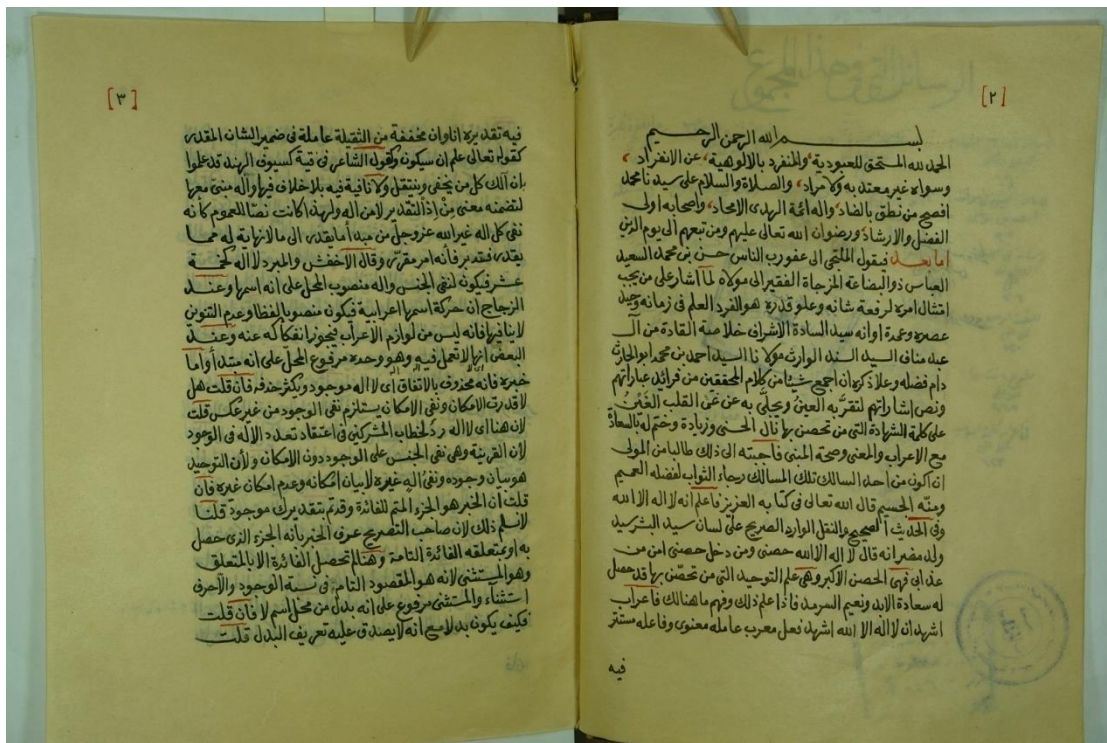 [٢]
بسم الله الرحمن الرحيم
الحمد لله المستحق للعبودية، والمنفرد بالالوهية، عن الانفراد،
وسواه غير معتد به ولا مراد، والصلاة والسلام على سيدنا محمد
افصح من نطق بالضاد، واله ائمة الهدى الامجاد، واصحابه اولى
الفضل والارشاد، ورضوان الله تعالى عليهم ومن تبعهم الى يوم الدين
اما بعد فيقول الملتجى الى عفو رب الناس حسن بن محمد السعيد
العباس ذو البضاعة المزجاة الفقير الى مولاه لما اشار على من يجب
امتثال امره لرفعة شانه وعلو قدره هو الفرد العلم فى زمانه وحيد
عصره وعدة اوانه سيد السادة الاشراف خلاصة القادة من آل
عبد مناف السيد السند الوارث مولانا السيد احمد بن محمد ابو الحارث
دام فضله وعلا ذكره ان اجمع شيئا من كلام المحققين من فرائد عباراتهم
ونص اشاراتهم لتقر به العين ويجلى به عن عين القلب الغين
على كلمة الشهادة التى من تحصن بها نال الحسنى وزيادة وختم له بالسعادة
مع الاعراب والمعنى وصحة المبنى فاجبته الى ذلك طالبا من المولى
ان اكون من احد السالك تلك المسالك رجاء الثواب لفضله العميم
ومنه الجسيم قال الله تعالى فى كتابه العزيز فاعلم انه لا اله الا الله
وفى الحديث الصحيح والنقل الوارد الصريح على لسان سيد البشر سيد
ولد مضر انه قال لا اله الا الله حصنى ومن دخل حصنى امن من
عذابى فهى الحصن الاكبر وهى علم التوحيد التى من تحصّن بها قد حصل
له سعادة الابد ونعيم السرمد فاذا علم ذلك وفهم ما هنالك فاعراب
اشهد ان لا اله الا الله اشهد فعل معرب عامله معنوى وفاعله مستتر
فيه
[٣]
فيه تقديره انا وان مخففة من الثقيلة عاملة فى ضمير الشان المقدر
كقوله تعالى علم ان سيكون وكقول الشاعر فى فتية كسيوف الهند قد علموا
بان هالك كل من يحفى وينتعل ولا نافية فيه بلا خلاف فيها واله مبنى معها
لتضمنه معنى من اذ التقدير لا من اله ولهذا كانت نصا للعموم كانه
نفى كل اله غير الله عز وجل من مبدأ ما يقدر الى ما لا نهاية له مما
يقدر فتدبر فانه امر مقرر وقال الاخفش والمبرد لا اله كخمسة
عشر فيكون لنفى الجنس واله منصوب المحل على انه اسمها وعند
الزجاج ان حركة اسمها اعرابية فيكون منصوبا لفظا وعدم التنوين
لا ينافيها فانه ليس من لوازم الاعراب فيجوز انفكاكه عنه وعند
البعض انها لا تعمل فيه وهو وحده مرفوع المحل على انه مبتدأ واما
خبره فانه محذوف بالاتفاق اى لا اله موجود ويكثر حذفه فان قلت هل
لا قدرت الامكان ونفى الامكان يستلزم نفى الوجود من غير عكس قلت
لان هذا اى لا اله رد لخطاب المشركين فى اعتقاد تعدد الاله فى الوجود
لان القرينة وهى نفى الجنس على الوجود دون الامكان ولان التوحيد
هو بيان وجوده ونفى اله غيره لا بيان امكانه وعدم امكان غيره فان
قلت ان الخبر هو الجزء المتم للفائدة وقد تم بتقديرك موجود قلنا
لا نسلم ذلك لان صاحب التصريح عرف الخبر بانه الجزء الذى حصل
به او بمتعلقه الفائدة التامة وهنا لم تحصل الفائدة الا بالمتعلق
وهو المستثنى لانه هو المقصود التام فى نسبة الوجود والا حرف
استثناء والمستثنى مرفوع على انه بدل من محل اسم لا فان قلت
فكيف يكون بدلا مع انه لا يصدق عليه تعريف البدل قلت